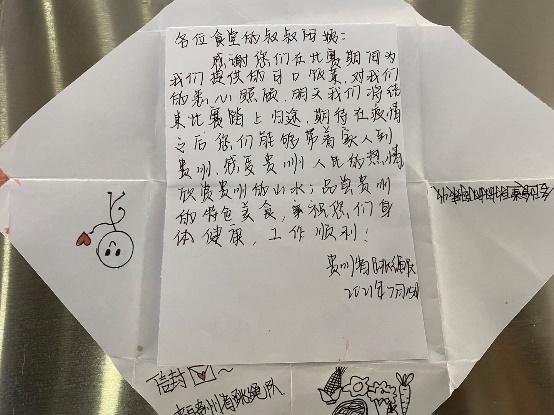 各位食堂的叔叔阿姨:
感谢您们在比赛期间为
我们提供的可口饭菜,对我们
的悉心照顾,明天我们将结
束比赛踏上归途,期待在疫情
之后您们能够带着家人到
贵州,感受贵州人民的热情
欣赏贵州的山水;品尝贵州
的特色美食,祝您们身
体健康,工作顺利!
贵州省跳绳队
2021年7月
信封~
来自贵州省跳绳队